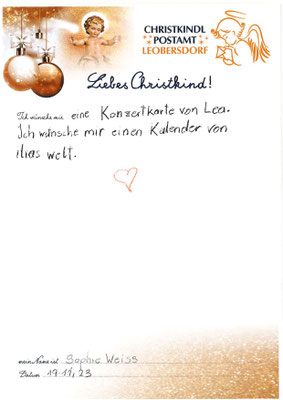 CHRISTKINDL
POSTAMT
LEOBERSDORF
Liebes Christkind!
Ich wünsche mir eine Konzertkarte von Lea.
Ich wünsche mir einen Kalender von
ilias welt.
mein Name ist Sophie Weiss
Datum 19.11,23